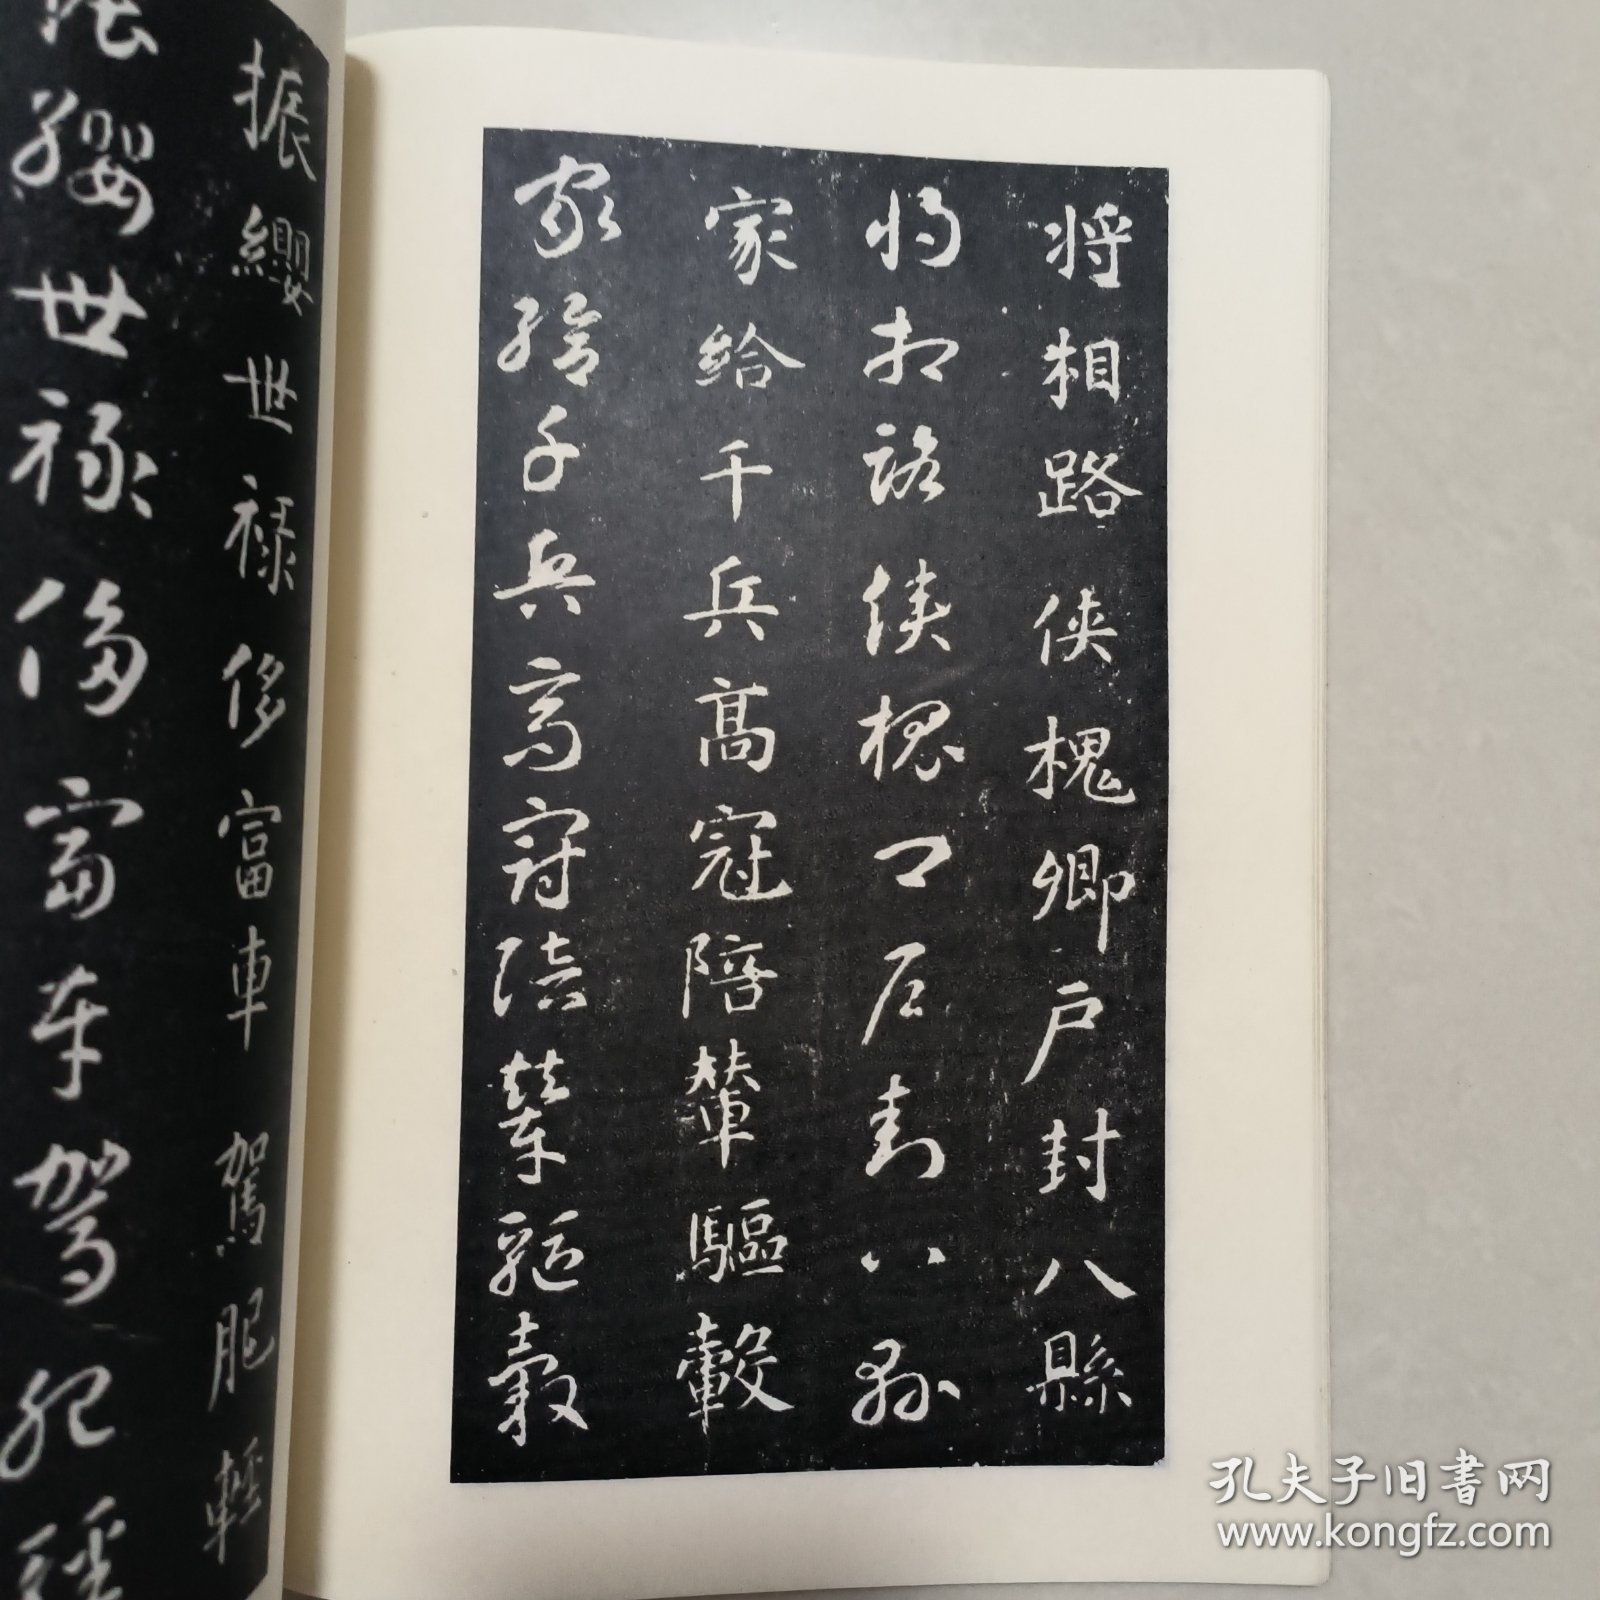 将相路侠槐卿户封八縣
将相路侠槐卿户封八縣
家給千兵高冠陪輦驅轂
家給千兵高冠陪輦驅轂
振纓世禄侈富車駕肥輕
振纓世禄侈富車駕肥輕
孔夫子旧書网
www.kongfz.com